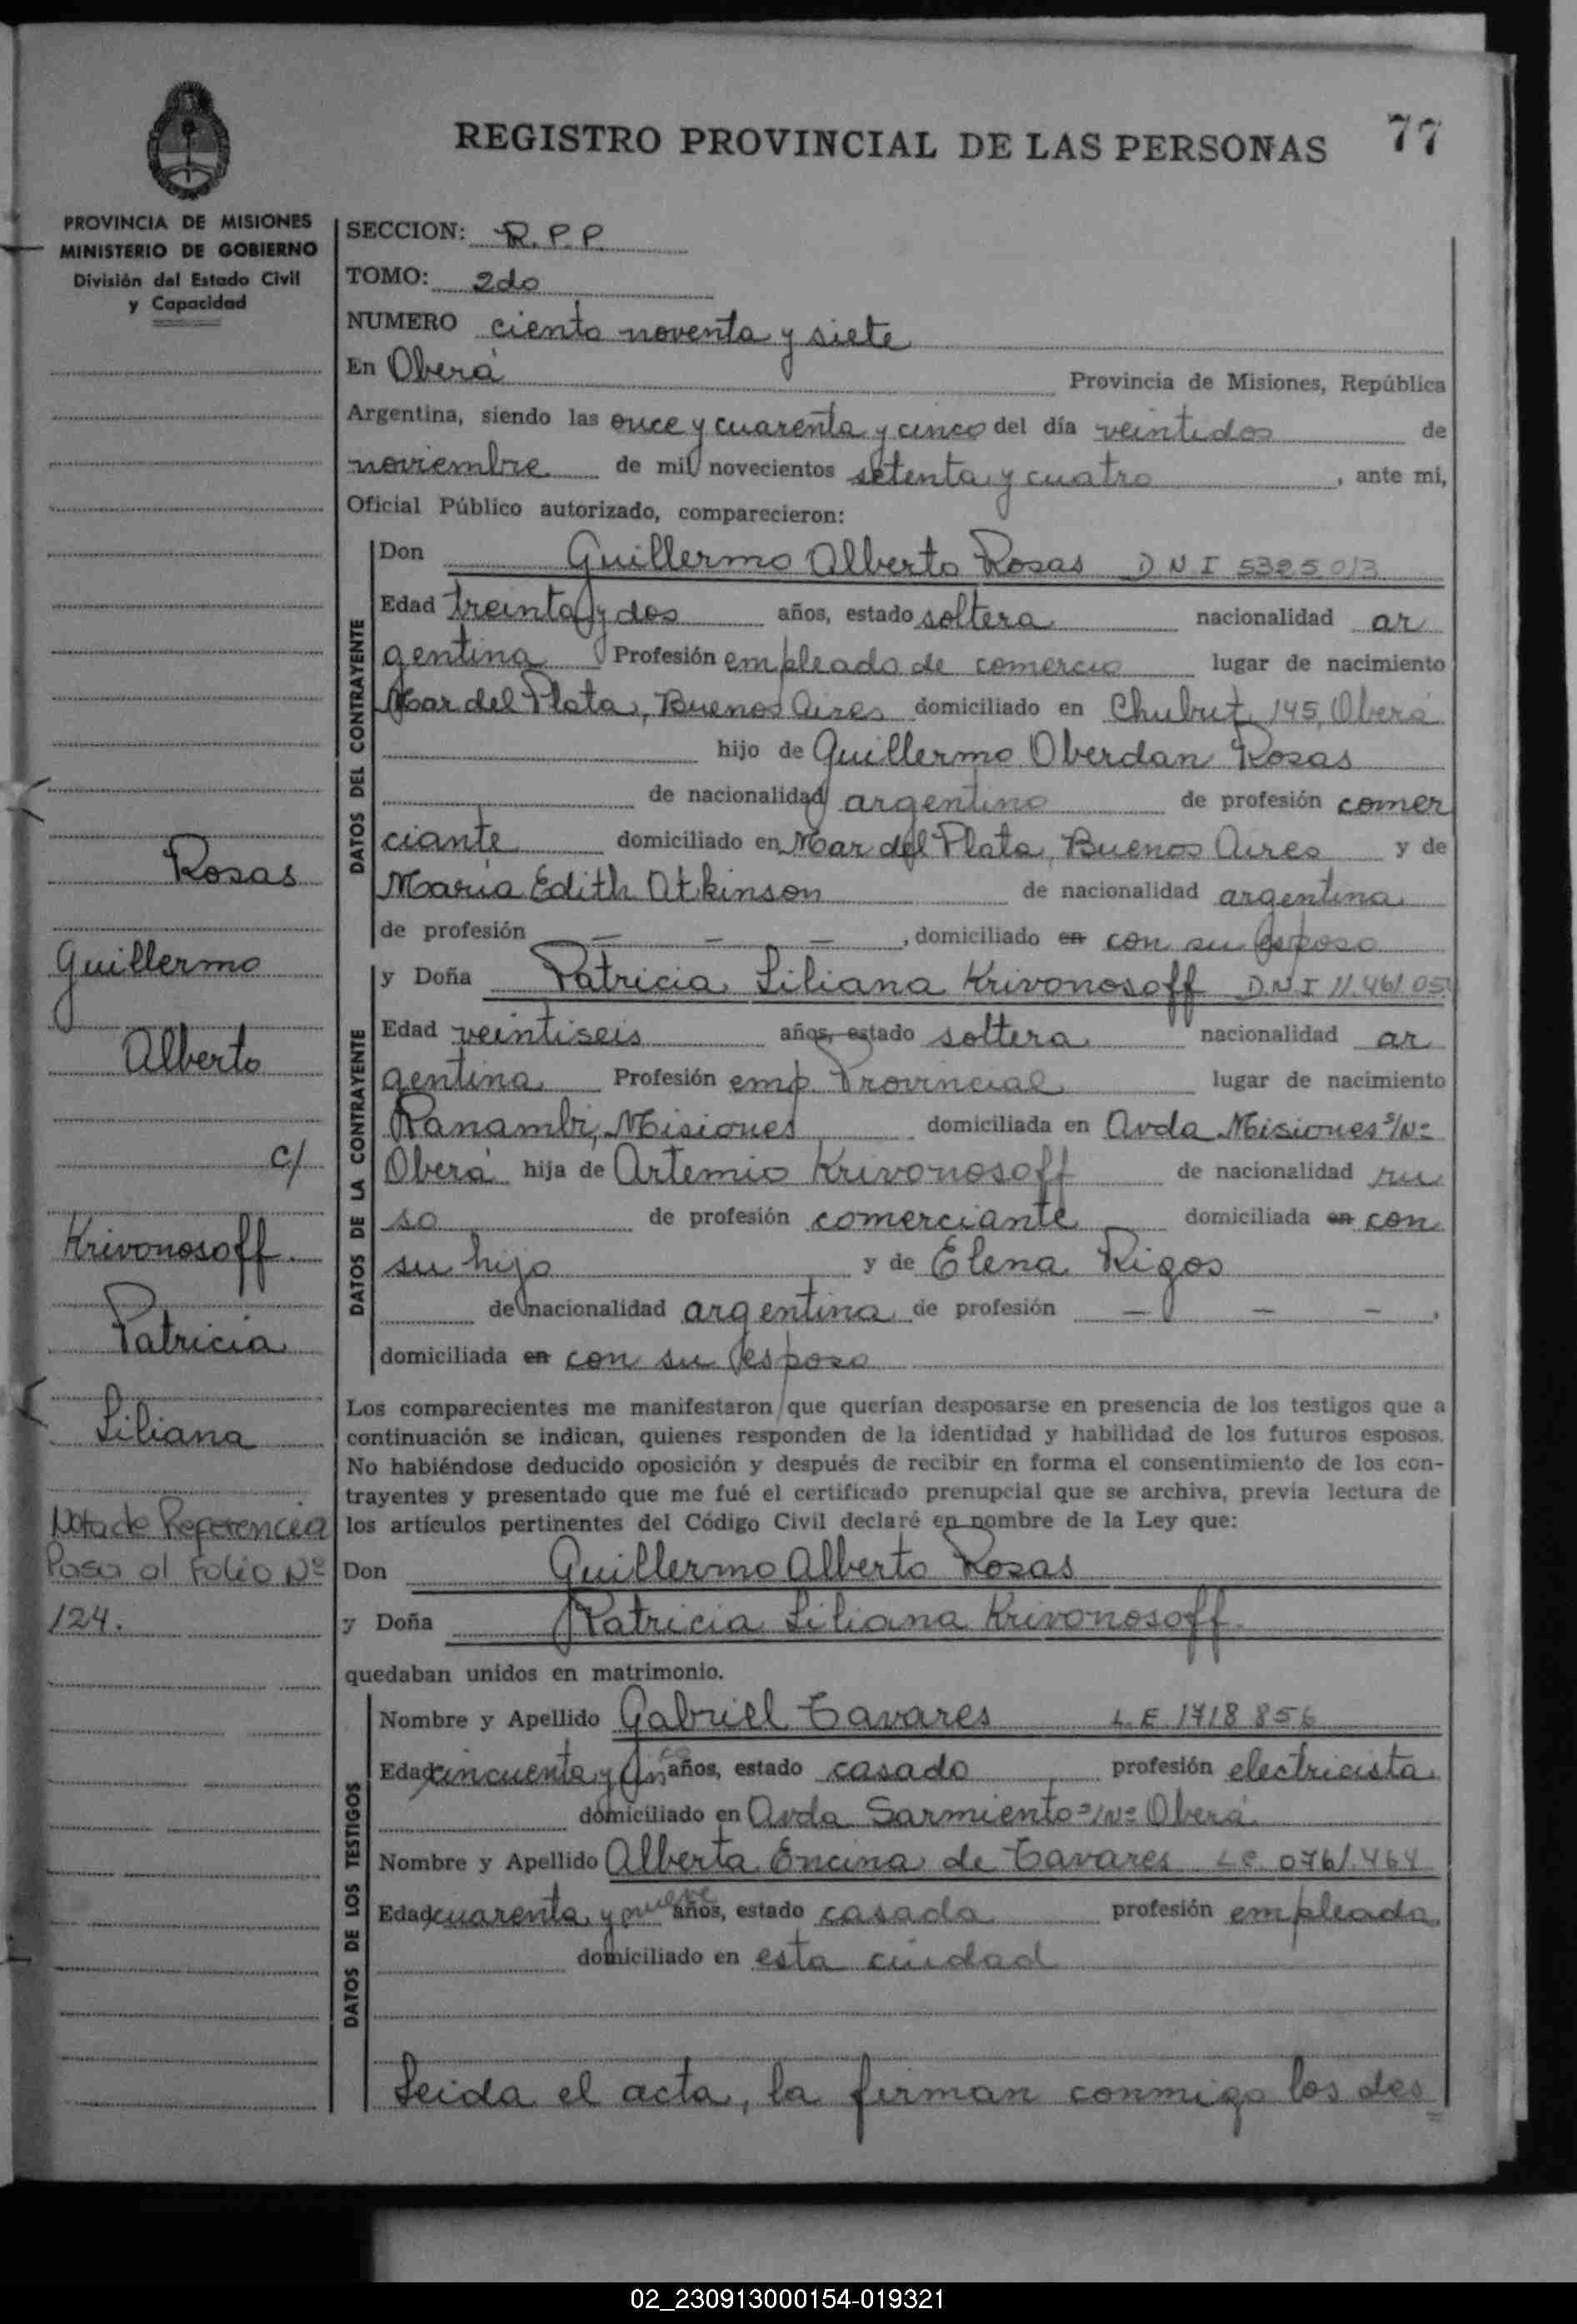 REGISTRO PROVINCIAL DE LAS PERSONAS 77
PROVINCIA DE MISIONES
MINISTERIO DE GOBIERNO
División del Estado Civil
y Capacidad
Rosas
Guillermo
Alberto
c/
Krivonosoff
Patricia
Liliana
Nota de Referencia
Pasa al Folio Nº
124.
SECCION: R.P.P.
TOMO: 2do
NUMERO ciento noventa y siete
En Oberá Provincia de Misiones, República
Argentina, siendo las once y cuarenta y cinco del día veintidos de
noviembre de mil novecientos setenta y cuatro, ante mi,
Oficial Público autorizado, comparecieron:
DATOS DEL CONTRAYENTE
Don Guillermo Alberto Rosas DNI 5325013
Edad treinta y dos años, estado soltera nacionalidad ar
gentina Profesión empleado de comercio lugar de nacimiento
Mar del Plata, Buenos Aires domiciliado en Chubut 145, Oberá
hijo de Guillermo Oberdan Rosas
de nacionalidad argentino de profesión comer
ciante domiciliado en Mar del Plata, Buenos Aires y de
María Edith Atkinson de nacionalidad argentina
de profesión - - -, domiciliado en con su esposo
DATOS DE LA CONTRAYENTE
y Doña Patricia Liliana Krivonosoff D.N.I 11.461.054
Edad veintiseis años, estado soltera nacionalidad ar
gentina Profesión emp. Provincial lugar de nacimiento
Panambi, Misiones domiciliada en Avda Misiones s/Nº
Oberá hija de Artemio Krivonosoff de nacionalidad ru
so de profesión comerciante domiciliada en con
su hija y de Elena Rigos
de nacionalidad argentina de profesión - - -,
domiciliada en con su esposo
Los comparecientes me manifestaron que querían desposarse en presencia de los testigos que a
continuación se indican, quienes responden de la identidad y habilidad de los futuros esposos.
No habiéndose deducido oposición y después de recibir en forma el consentimiento de los con-
trayentes y presentado que me fué el certificado prenupcial que se archiva, previa lectura de
los artículos pertinentes del Código Civil declaré en nombre de la Ley que:
Don Guillermo Alberto Rosas
y Doña Patricia Liliana Krivonosoff
quedaban unidos en matrimonio.
DATOS DE LOS TESTIGOS
Nombre y Apellido Gabriel Tavares L.E 1718856
Edad cincuenta y años, estado casado profesión electricista
domiciliado en Avda Sarmiento s/Nº Oberá
Nombre y Apellido Alberta Encina de Tavares L.C. 0761.464
Edad cuarenta y nueve años, estado casada profesión empleada
domiciliado en esta ciudad
Leida el acta, la firman conmigo los des
02_230913000154-019321